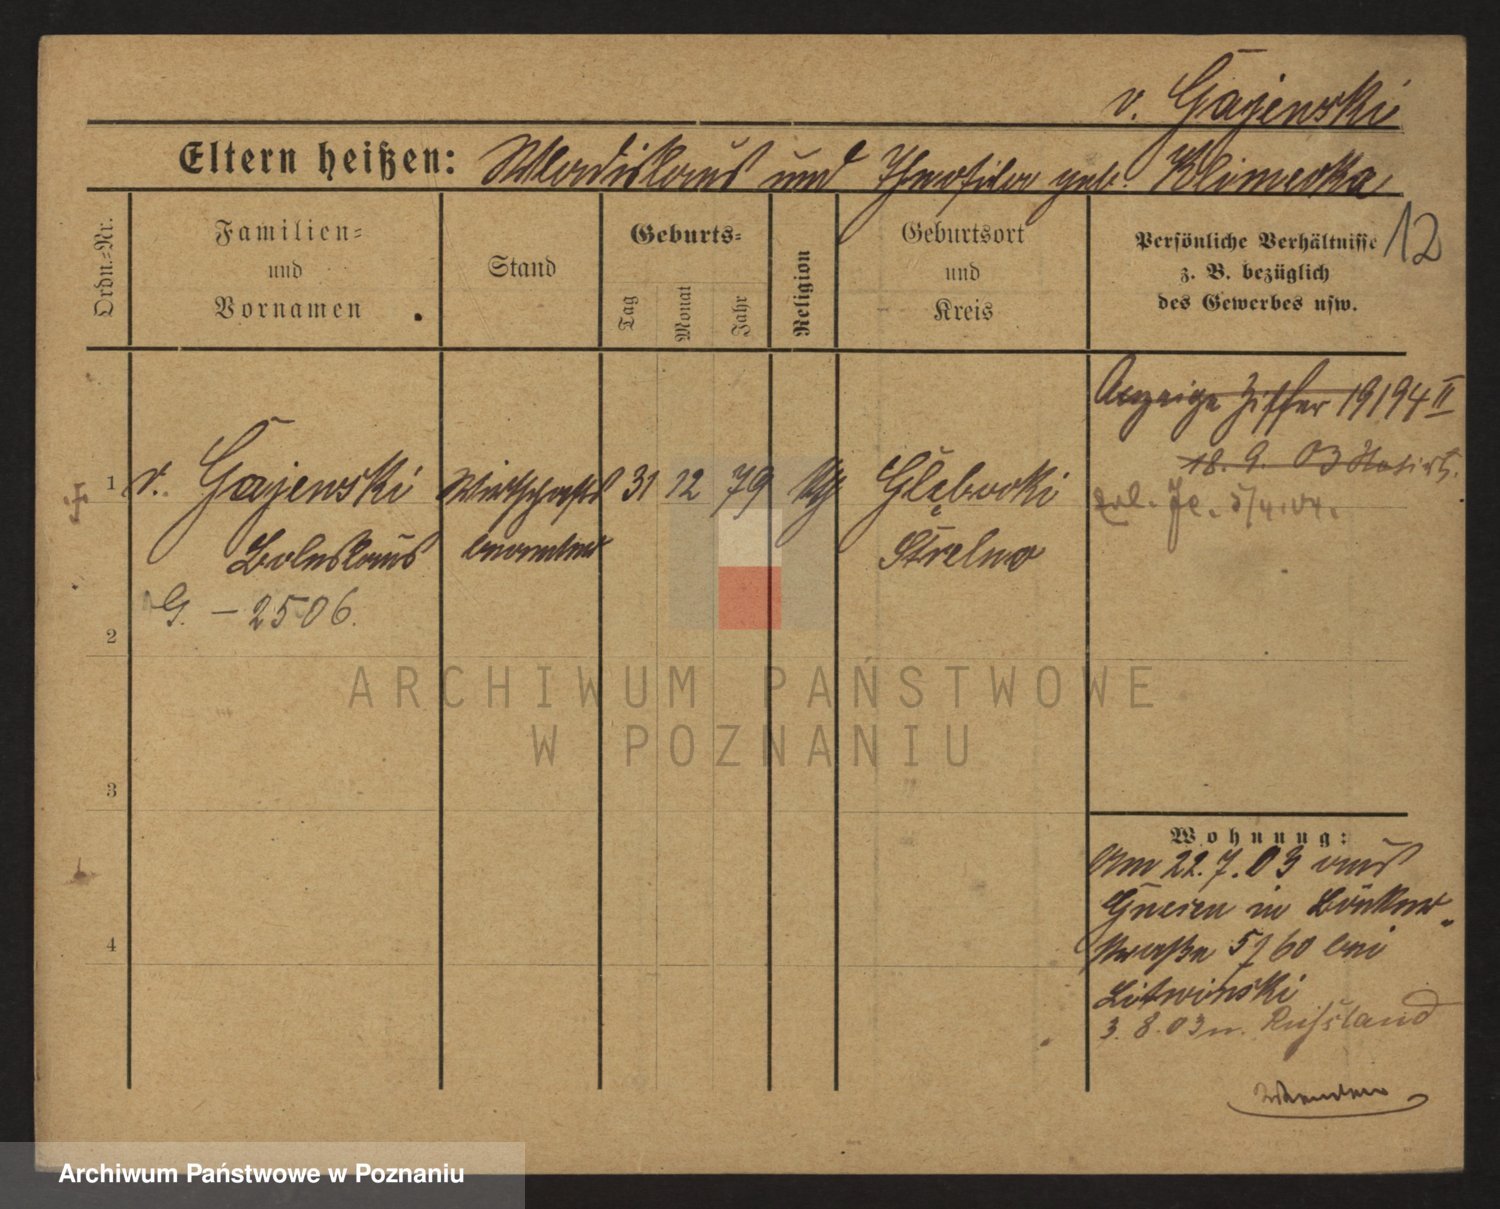 v. Gajewski
Eltern heißen: Wladislaus und Theofila geb. Klimecka
12
Ordn.-Nr.
Familien-
und
Vornamen
Stand
Geburts-
Tag
Monat
Jahr
Religion
Geburtsort
und
Kreis
Persönliche Verhältnisse
z. B. bezüglich
des Gewerbes usw.
Anzeige Ziffer 19194 II
18. 9. 03
5/4.04.
1 v. Gajewski Wirtschafts 31 12 79 Głębocki
Boleslaus beamter Strelno
G. - 2506.
2
3
4
Wohnung:
Am 22.7.03 aus
Gnesen in
straße 5/60 bei
Litwinski
3. 8. 03 n. Russland
ARCHIWUM PAŃSTWOWE
W POZNANIU
Archiwum Państwowe w Poznaniu